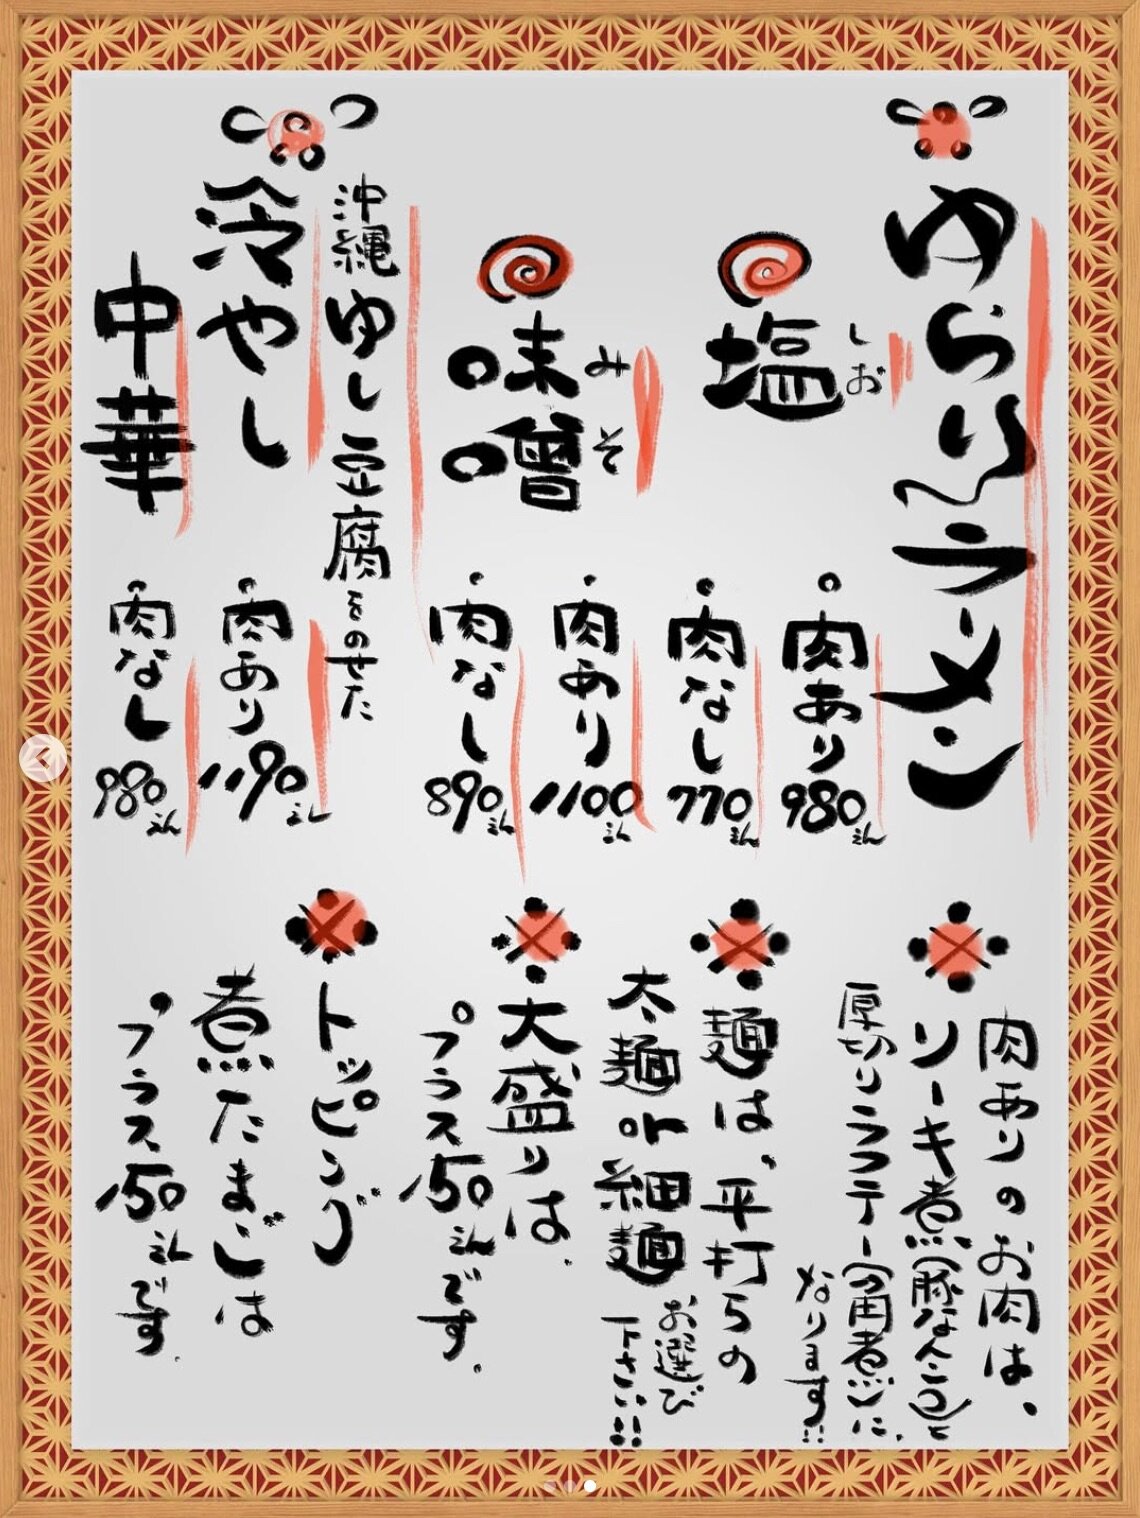 ゆらりラーメン
塩
しお
肉あり980えん
肉なし770えん
味噌
みそ
肉あり1100えん
肉なし890えん
沖縄ゆし豆腐をのせた
冷やし
中華
肉あり1190えん
肉なし980えん
肉ありのお肉は、
ソーキ煮(豚なんこつ)と
厚切りラフテー(角煮)に、
なります!!
麺は、平打ちの
太麺or細麺
お選び
下さい!!
大盛りは、
プラス150えんです。
トッピング
煮たまごは
プラス150えんです。